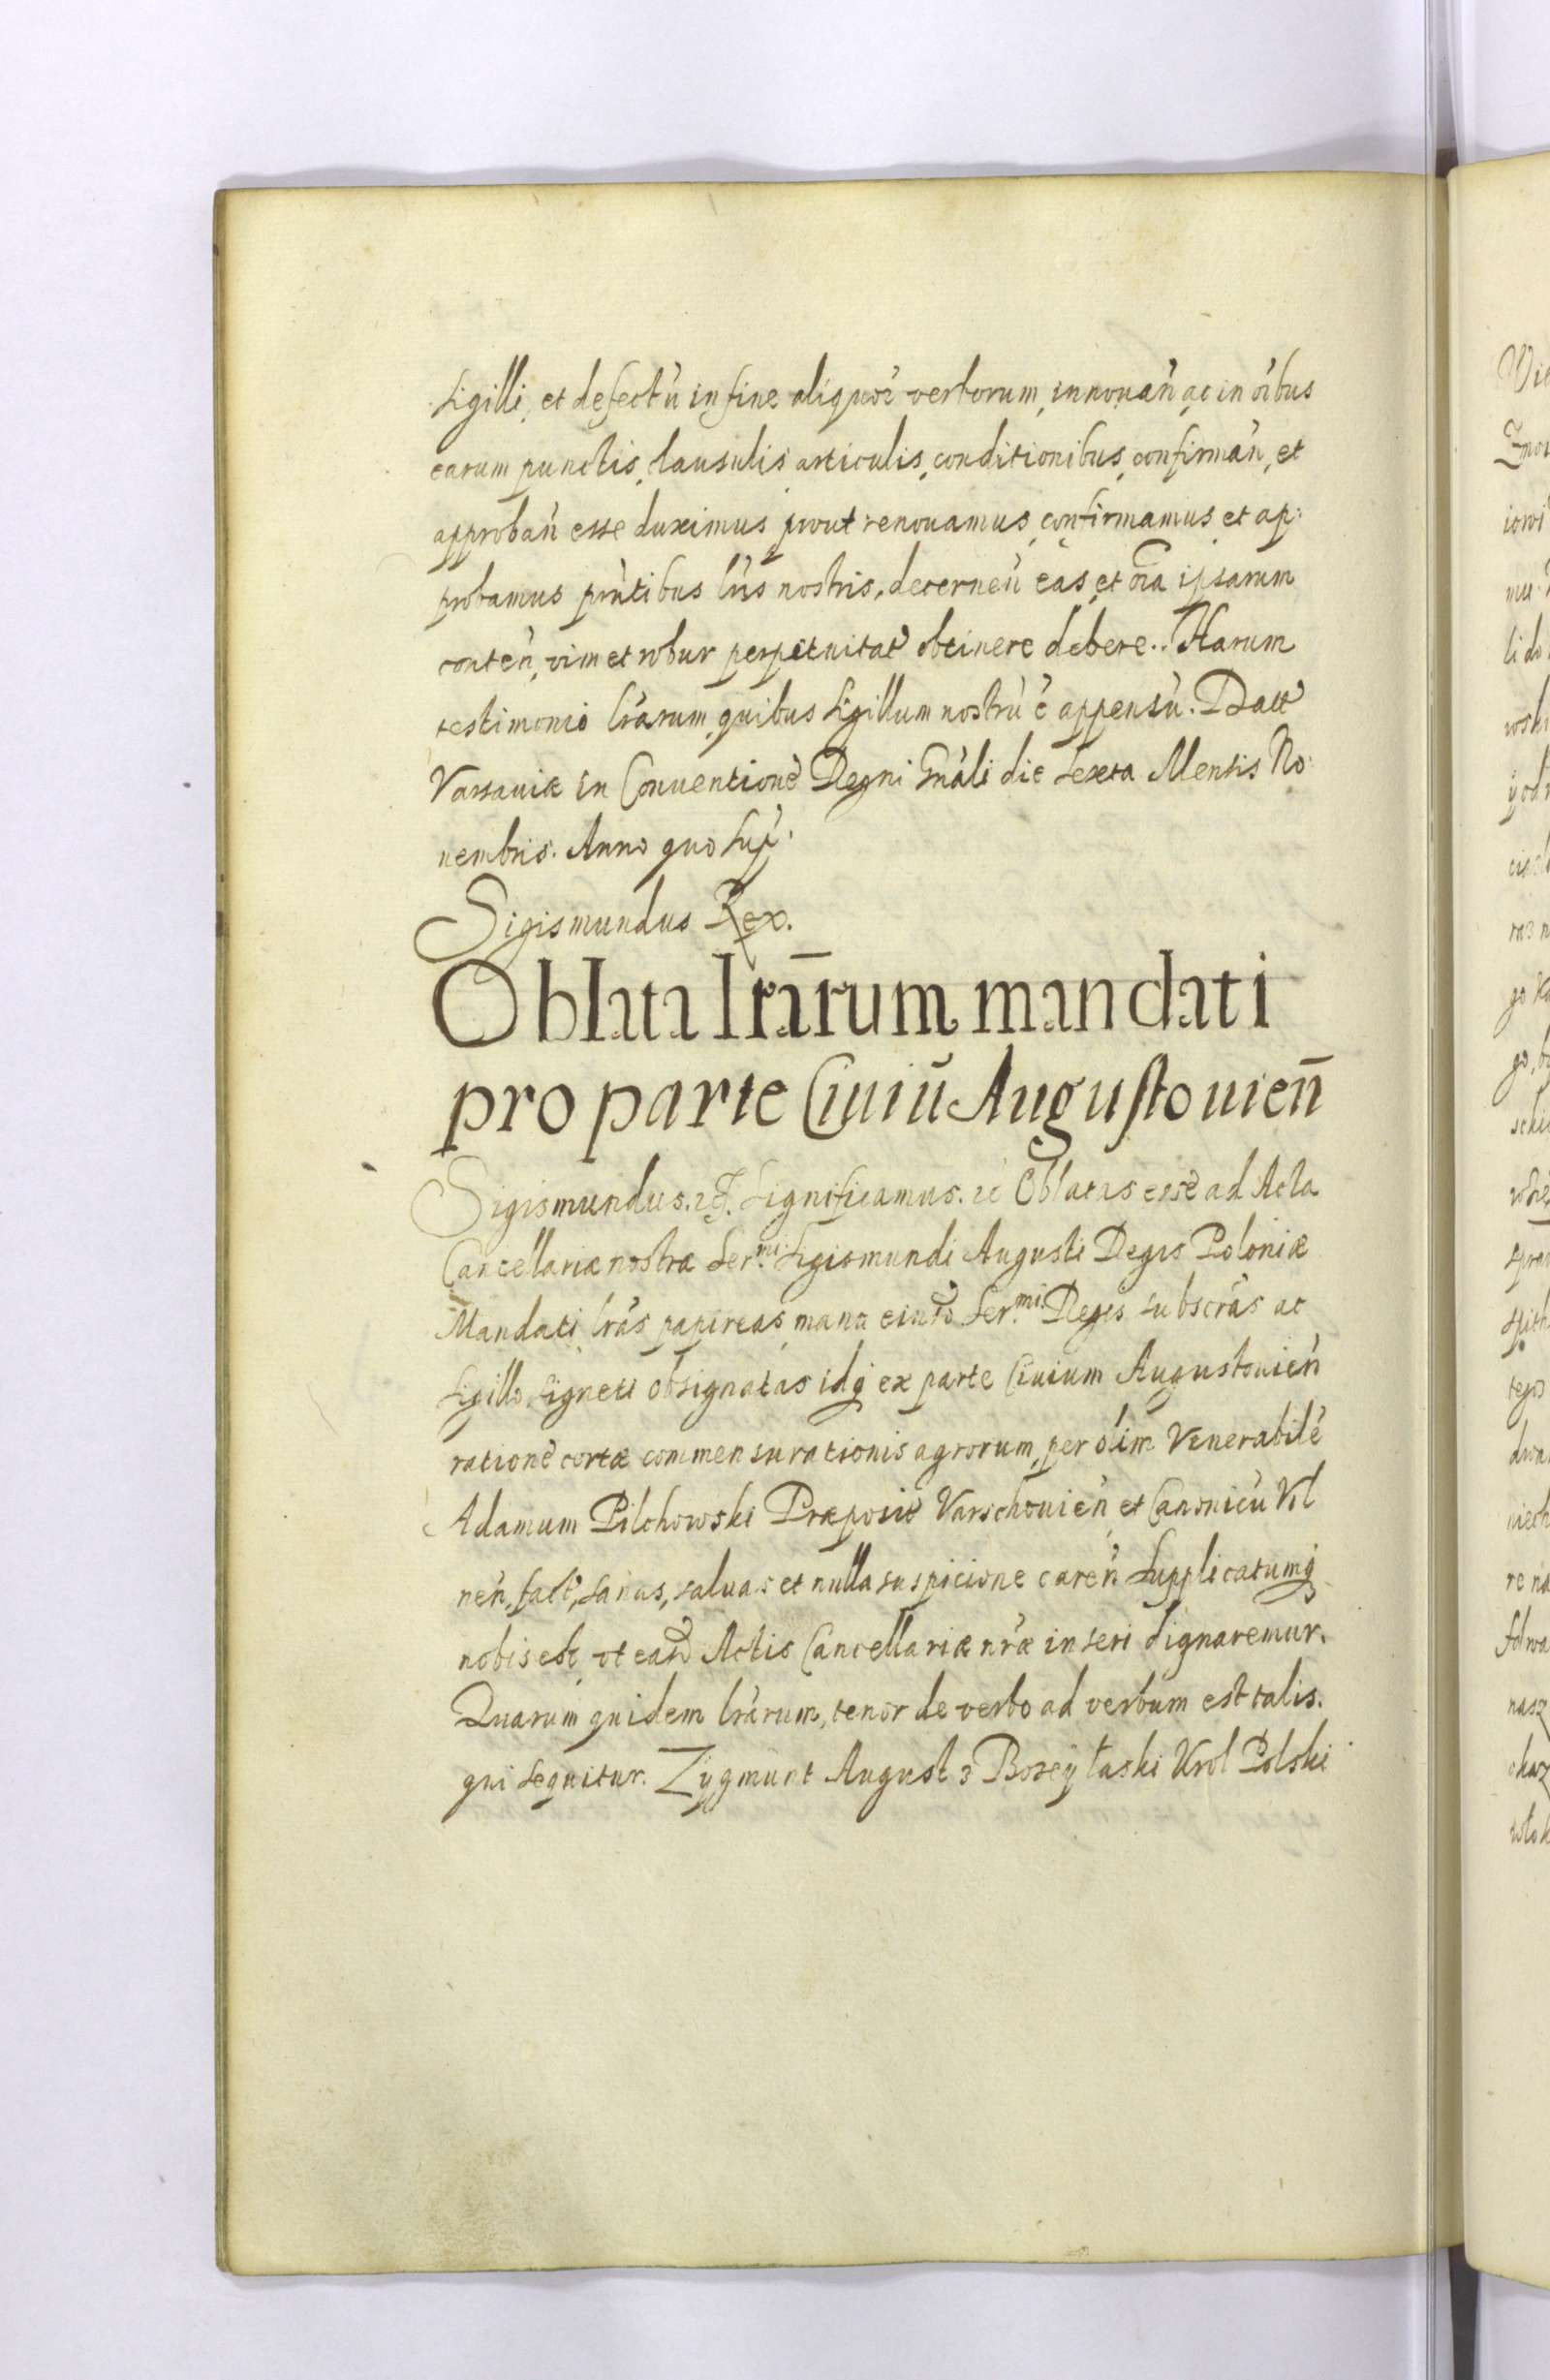 Sigilli, et defectū in fine aliquor verborum, innouan̄ ac in oībus
earum punctis, clausulis, articulis, conditionibus, confirman̄, et
approban̄ esse duximus prout renouamus, confirmamus, et ap:
probamus pn̄tibus lr̄is nostris, decernen̄ eas, et oīa ipsarum
conten̄, vim et robur perpetuitat obtinere debere. Harum
testimonio lr̄arum, quibus Sigillum nostrū ē appensū. Datt
Varsauiæ in Conuentionē Regni Gnāli die sexta Mensis No:
uembris. Anno quo sup̄.
Sigismundus Rex.
Oblata lrārum mandati
pro parte Ciuiū Augustouien̄
Sigismundus. etc. Significamus. etc Oblatas esse ad Acta
Cancellariæ nostræ Ser.mi Sigismundi Augusti Regis Poloniæ
Mandati lrās papireas, manu eiusd Ser.mi Regis subscrās ac
Sigillo Signeti obsignatas idq ex parte Ciuium Augustouien̄
rationē certæ commensurationis agrorum, per olim Venerabilē
Adamum Pilchowski Præposit Varschouien̄ et Canonicū Vil
nen̄, fact, sanas, saluas et nulla suspicione caren̄. Supplicatumq
nobis est, vt easd Actis Cancellariæ nrǣ inseri dignaremur.
Quarum quidem lrārum, tenor de verbo ad verbum est talis.
qui sequitur. Zygmunt August z Bozey łaski Krol Polski